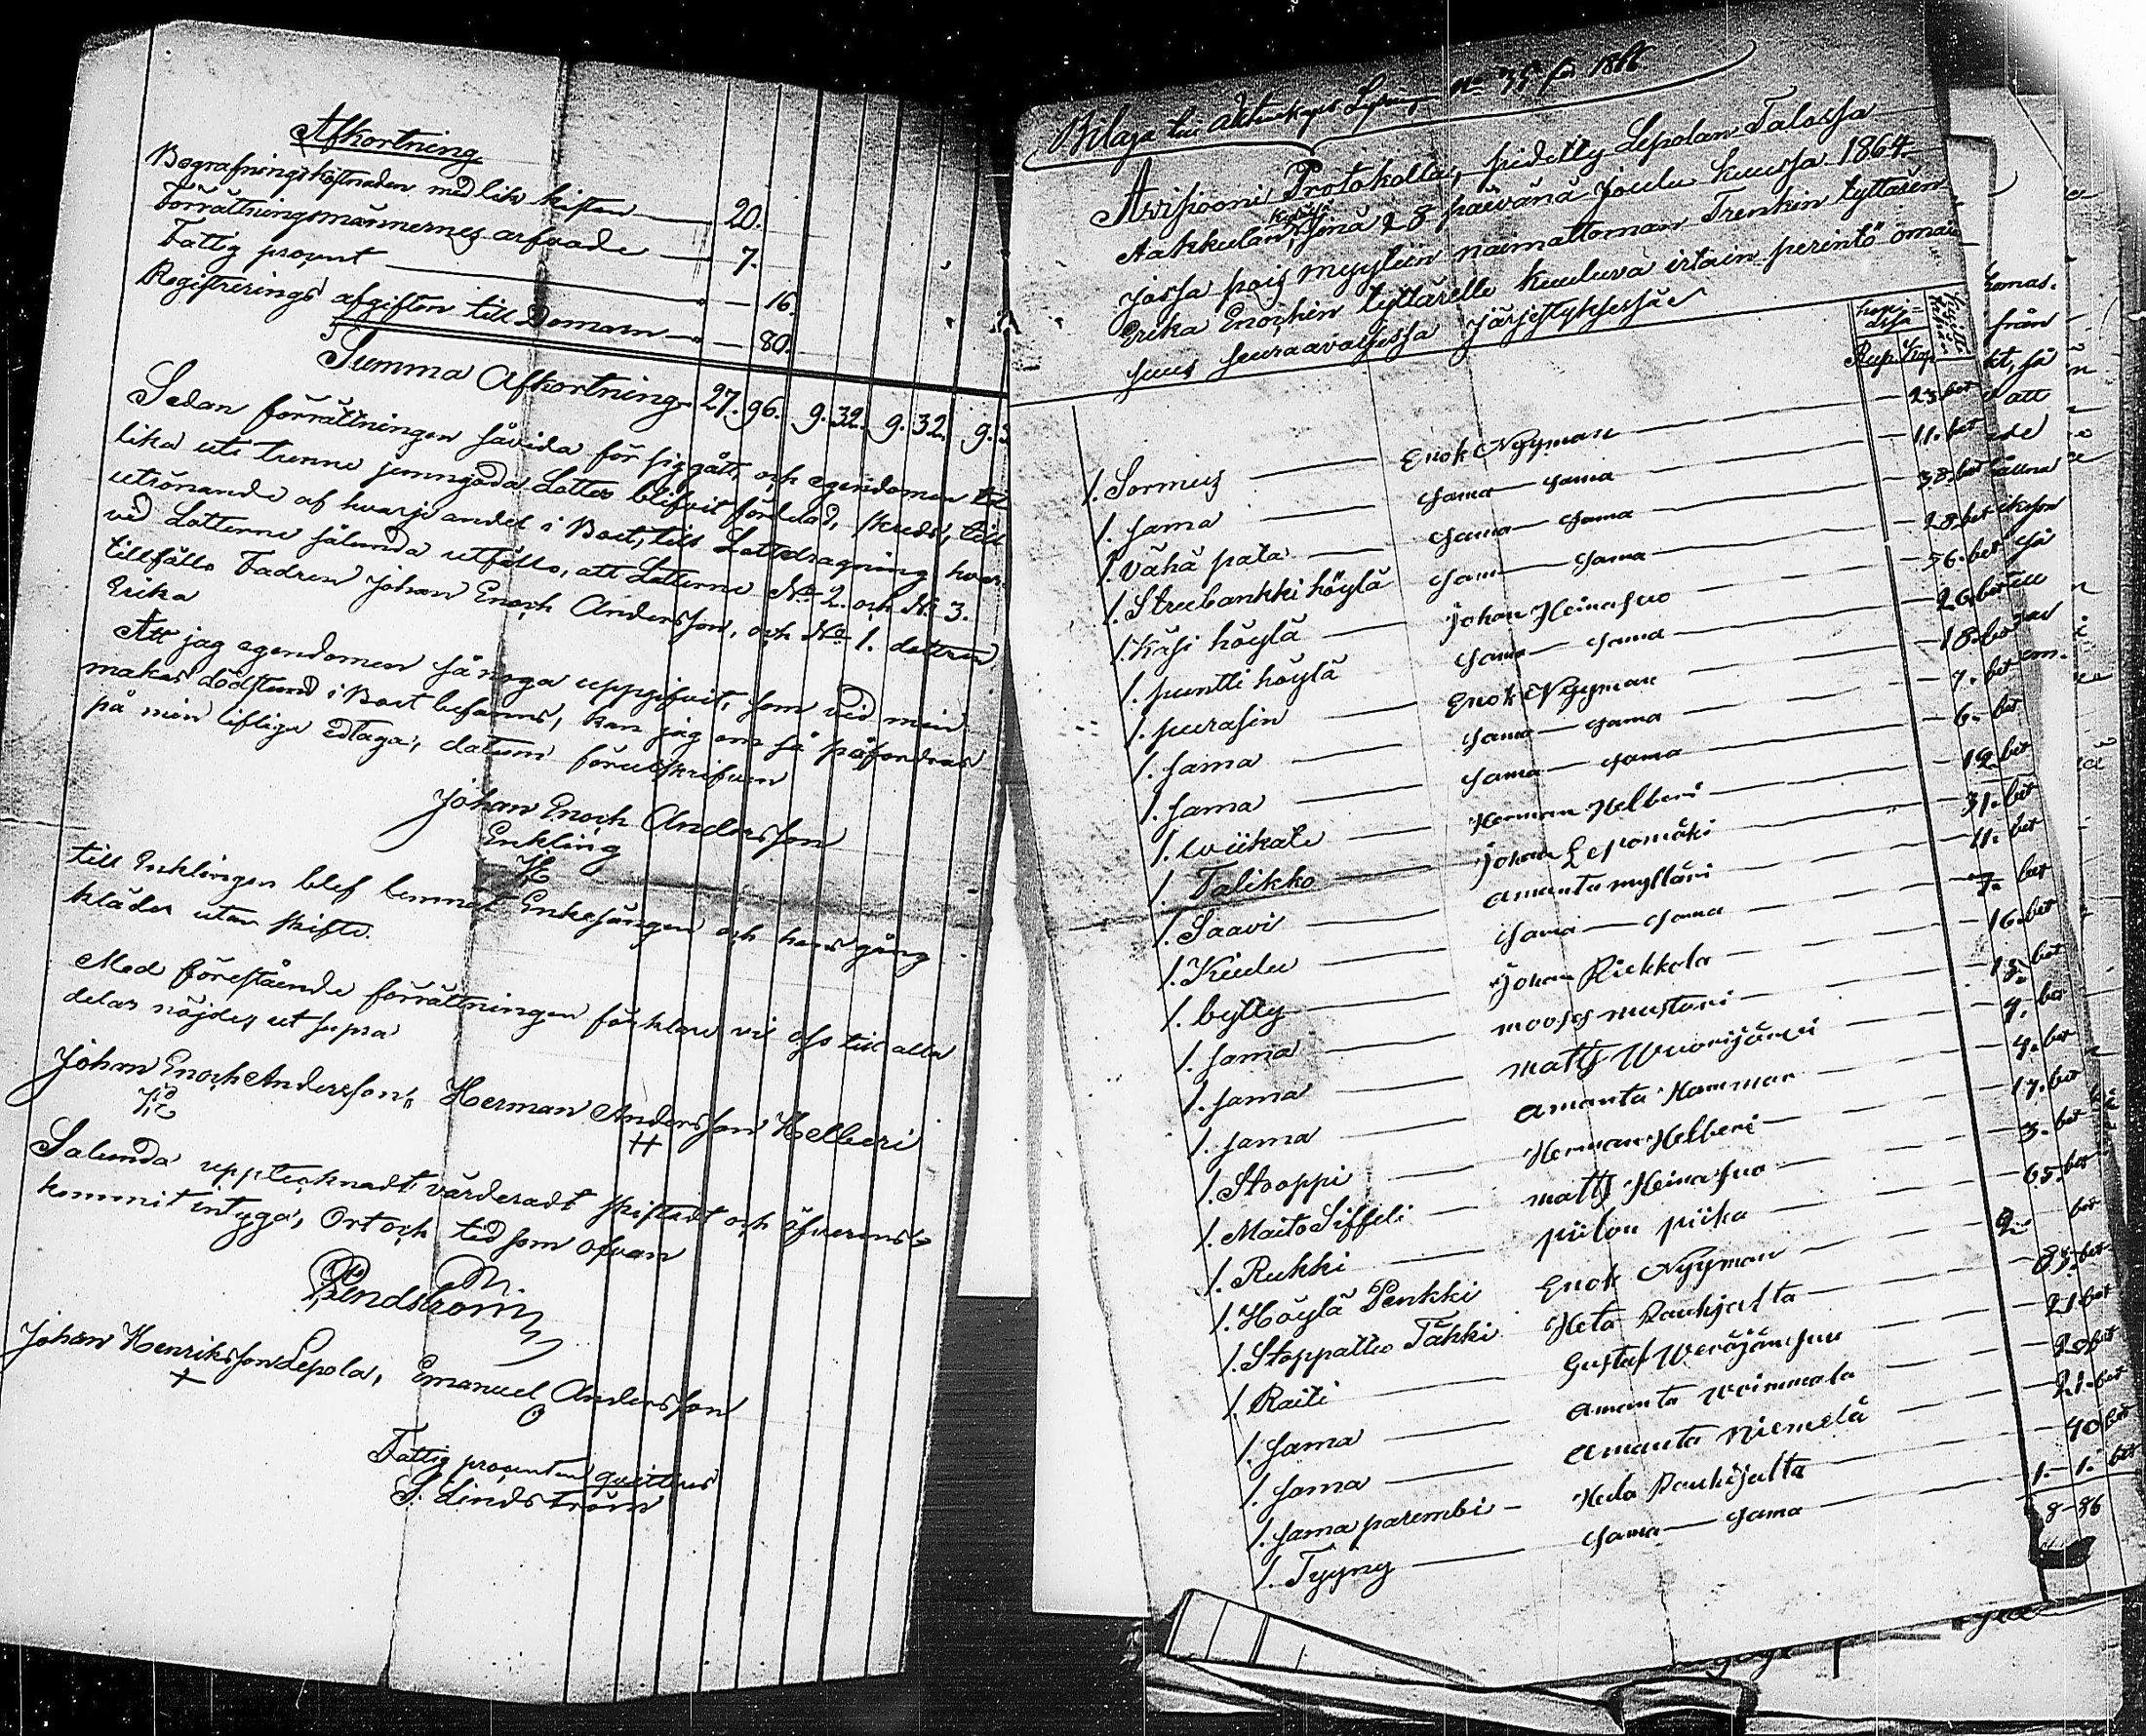 Afkortning
Begrafningskostnaden med lik kistan 20.
Förrättningsmännernes arfvode 7.
Fattig procent 16.
Registrerings afgiften till Domarn 80.
Summa Afkortning 27. 96. 9. 32. 9. 32. 9. 3
Sedan förrättningen såvida för sig gått, och egendomen till
lika uti trenne jemngoda Lotter blifvit fördelad, skedde, till
utrönande af hvarje andel i Boet, till Lottdragning hvar
vid Lotterne sålunda utföllo, att Lotterne No 2. och No 3.
tillföllo Fadren Johan Enoch Andersson, och No 1. dottren
Erika
Att jag egendomen så noga uppgifvit, som vid min
makas dödstund i Boet befanns, kan jag om så påfordras
på min lifliga Edtaga, datum föreskrifven
Johan Enoch Andersson
Enkling
till Enklingen blef lemnat Enkesängen och hans gång
kläder utan skifte.
Med förestående förrättningen förklare vi oss till alla
delar nöjde, ut supra
Johan Enoch Andersson, Herman Andersson Helberi
Sålunda upptecknadt värderadt skiftadt och öfverens
kommit intyga, Ort och tid som ofvan
Johan Henriksson Lepola, Emanuel Andersson
Fattig procenten quitteras
S. Lindström
Bilaga till No 35 för 1866
Avisiooni Protokolla, pidetty Lepolan Talossa
Aakkulan kylä sinä 28 päivänä Joulu kuussa 1864
jossa pois myytiin naimattoman Trenkin tyttären
Erika Enochin tyttärelle kuuluva irtain perintö omai
suus seuraavaisessa Järjestyksessä
hopi-
assa
Rup. Kop.
1. Sormus Enok Nyyman 23. bet
1. sama sama sama 11. bet
1. Vähä pata sama sama 38. bet
1. Streebankki höylä sama sama 28. bet
1. Käsi höylä Johan Heinasuo 56. bet
1. puntti höylä sama sama 26. bet
1. purasin Enok Nyyman 18. bet
1. sama sama sama 7. bet
1. sama sama sama 6. bet
1. wiikate Herman Helberi 12 bet
1. Talikko Johan Lepomäki 31. bet
1. Saavi Amanta mylläri 11. bet
1. Kiulu sama sama 7. bet
1. bytty Johan Riekkola 16. bet
1. sama mooses mustari 15. bet
1. sama matts Wuorijärvi 9. bet
1. sama Amanta Hammar 4. bet
1. Stooppi Herman Helberi 17. bet
1. Maito Siffeli matts Heinasuo 3. bet
1. Rukki piilon piika 65. bet
1. Höylä Penkki Enok Nyyman 2 bet
1. Stoppatto Täkki Heta Rauhjalta 85. bet
1. Raiti Gustaf Weräjänsuu 21. bet
1. sama Amanta woimmala 20 bet
1. sama Amanta Niemelä 21. bet
1. sama parembi Heta Rauhjalta 40 bet
1. Tyyny sama sama 1. 1. bet
8-86